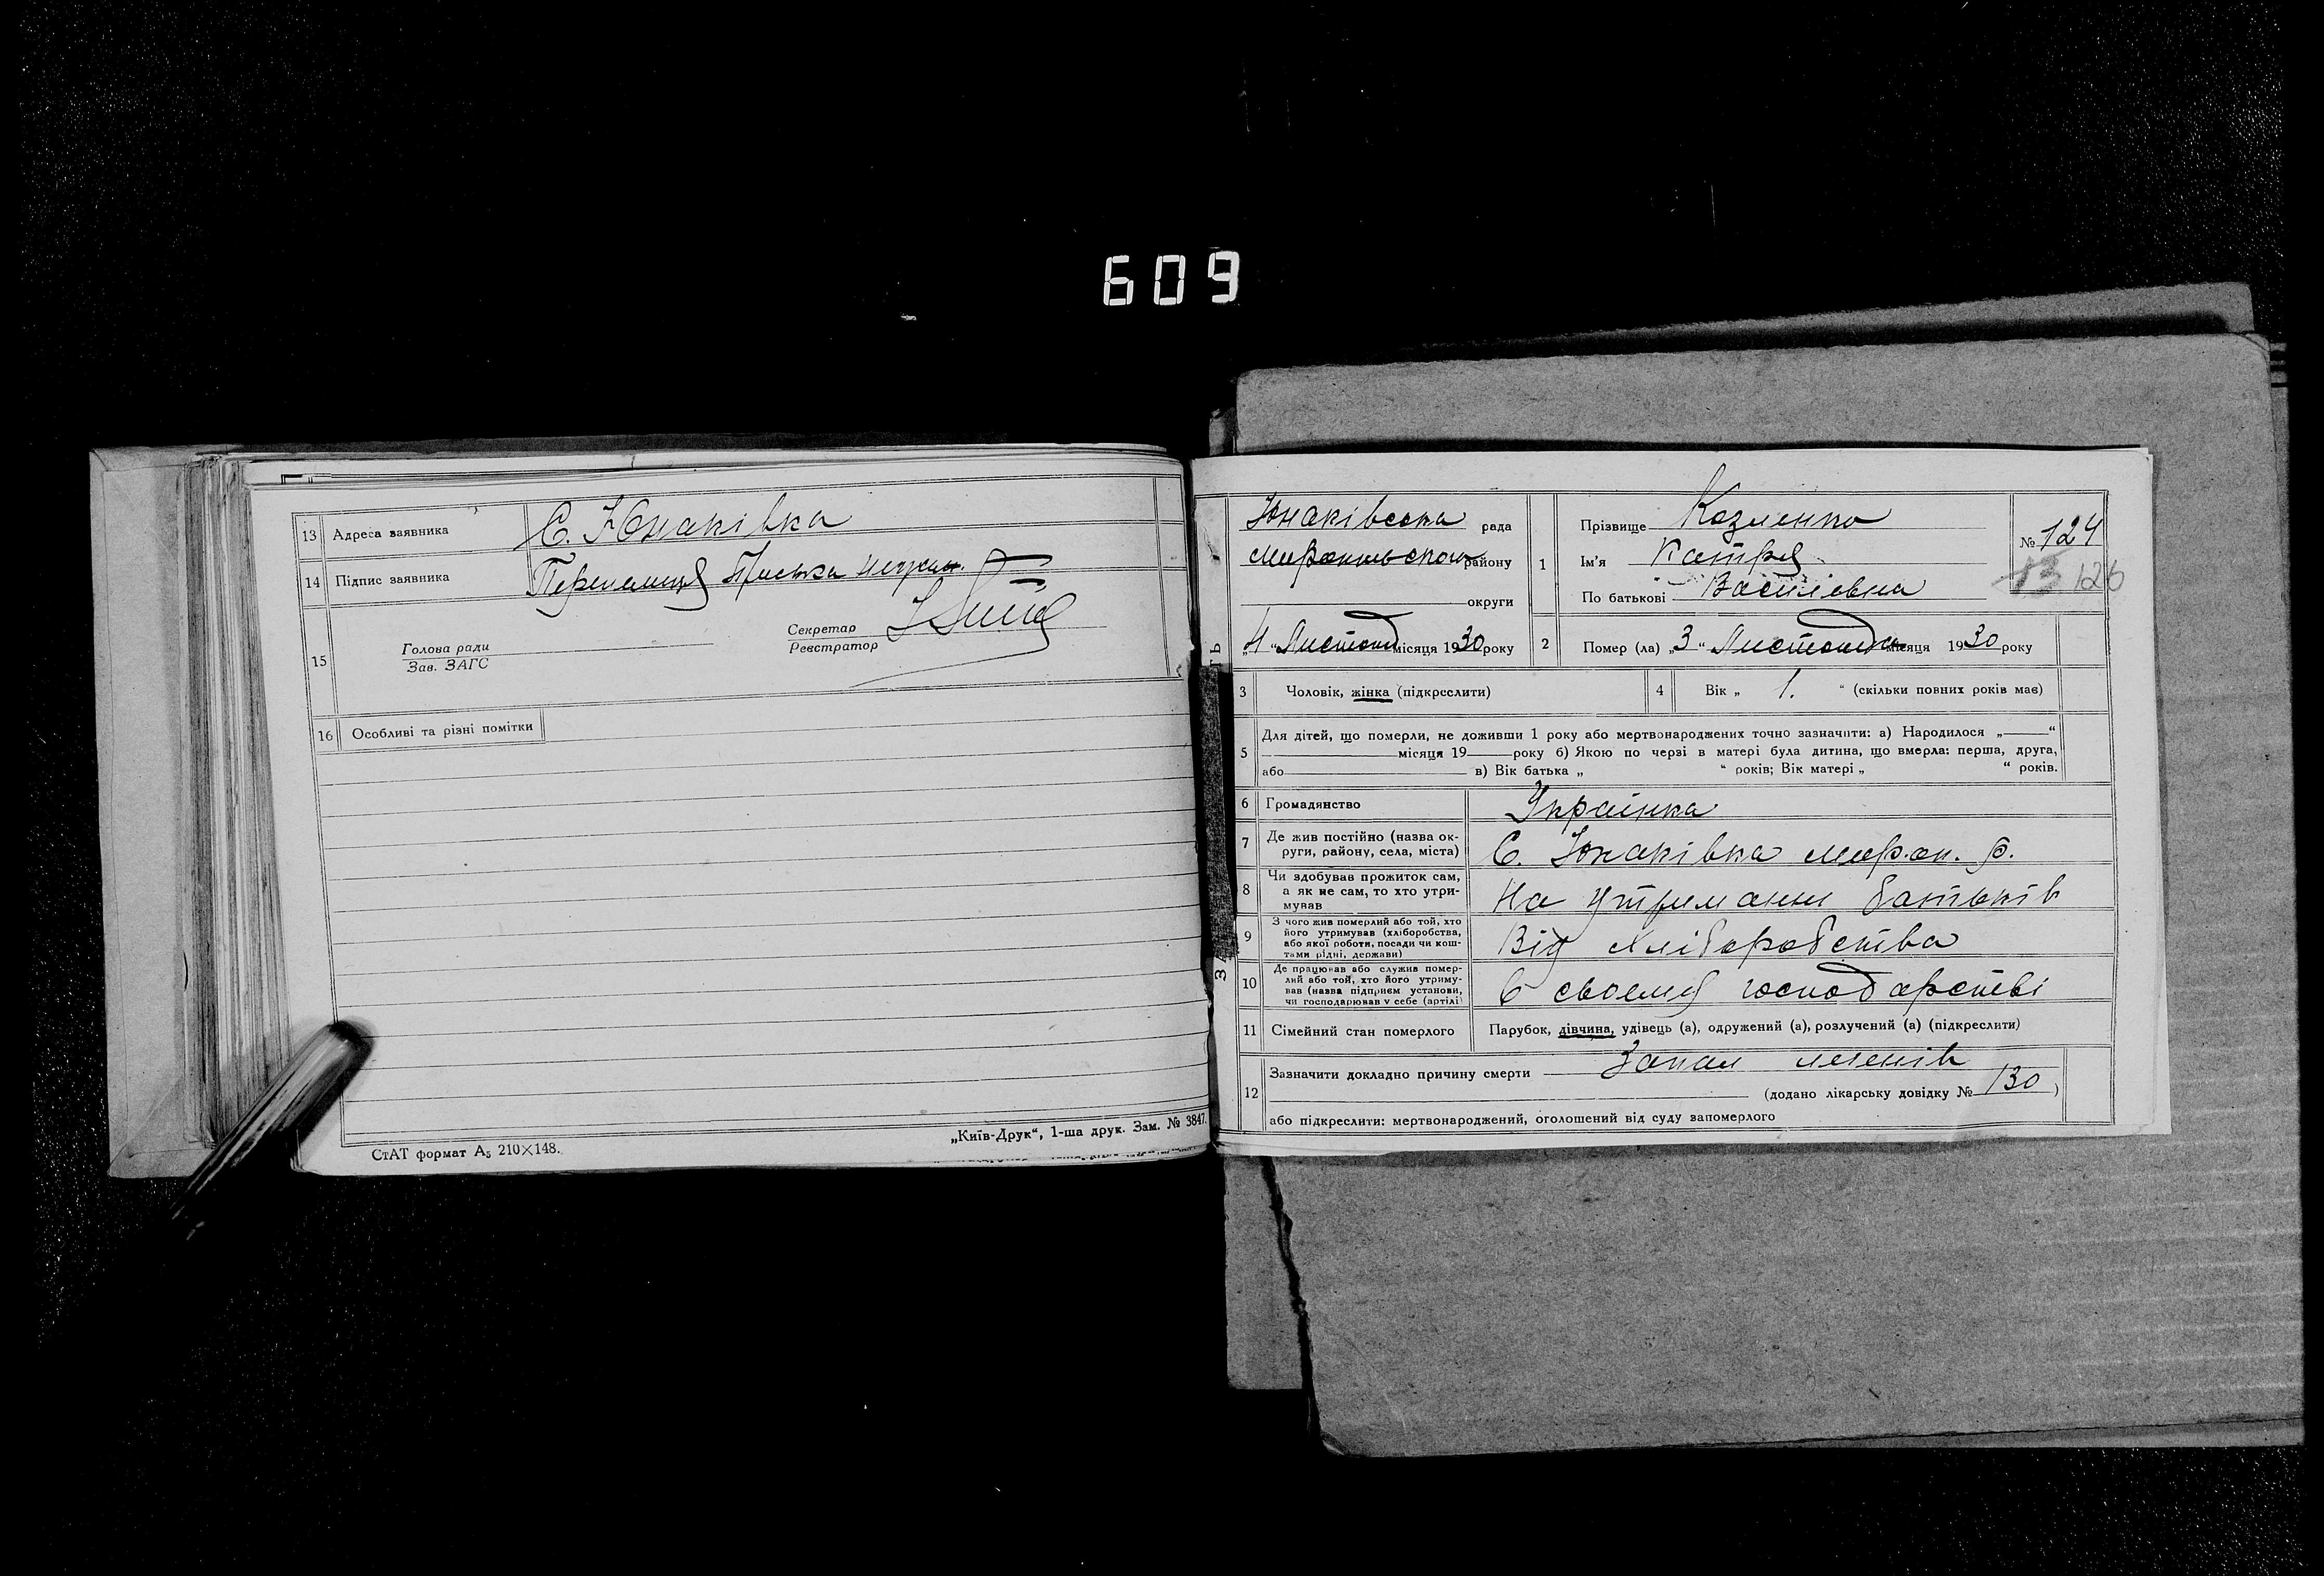 609
13 Адреса заявника С. Юнаківка
14 Підпис заявника Приська
15 Голова ради Зав. ЗАГС Секретар Реєстратор
16 Особливі та різні помітки
СтАТ формат А₅ 210×148.
„Київ-Друк“, 1-ша друк. Зам. № 3847.
Юнаківська рада
району
округи
„4“ Листопад місяця 1930 року
1 Прізвище Козленко
Ім'я Катря
По батькові Василівна
№ 124
13 126
2 Помер (ла) „3“ Листопада місяця 1930 року
3 Чоловік, жінка (підкреслити)
4 Вік „ 1. “ (скільки повних років має)
5 Для дітей, що померли, не доживши 1 року або мертвонароджених точно зазначити: а) Народилося „ “
місяця 19 року б) Якою по черзі в матері була дитина, що вмерла: перша, друга,
або в) Вік батька „ “ років; Вік матері „ “ років.
6 Громадянство Українка
7 Де жив постійно (назва ок-
руги, району, села, міста) С. Юнаківка мироп. р.
8 Чи здобував прожиток сам,
а як не сам, то хто утри-
мував На утриманні батьків
9 З чого жив померлий або той, хто
його утримував (хліборобства,
або якої роботи, посади чи кош-
тами рідні, держави) Від хліборобства
10 Де працював або служив помер-
лий або той, хто його утриму-
вав (назва підприєм установи,
чи господарював у себе (артілі) В своему господарстві
11 Сімейний стан померлого Парубок, дівчина, удівець (а), одружений (а), розлучений (а) (підкреслити)
12 Зазначити докладно причину смерти Запал легенів
(додано лікарську довідку № 130)
або підкреслити: мертвонароджений, оголошений від суду запомерлого